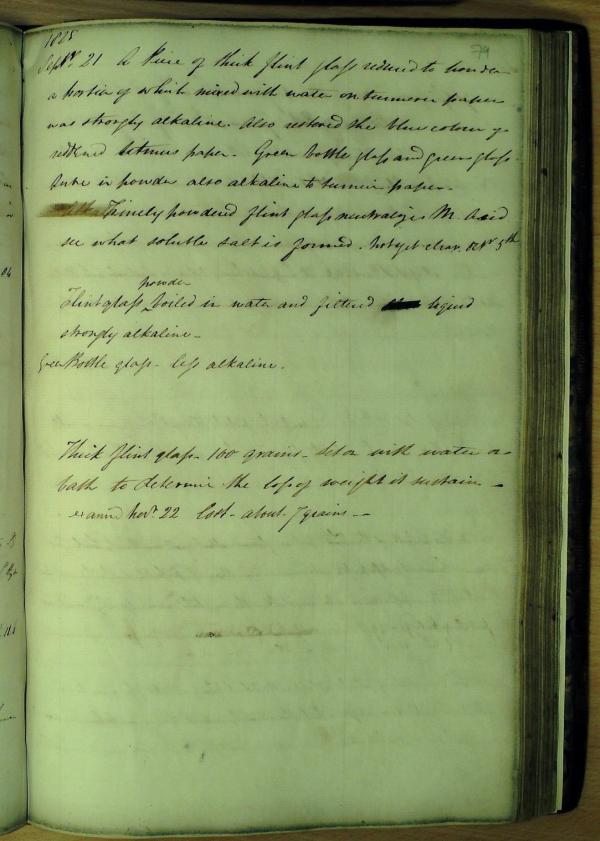 1825
79
Septr. 21 A piece of thick flint glass reduced to powder
a portion of which mixed with water on turmeric paper
was strongly alkaline. Also restored the blue colour of
reddened litmus paper. Green bottle glass and green glass
tube in powder also alkaline to turmeric paper.
Finely powdered flint glass neutralizes M. Acid
see what soluble salt is formed. Not yet clear. Octr 5th
powder
Flint glass boiled in water and filtered liquid
strongly alkaline
Green Bottle glass - less alkaline.
Thick flint glass - 100 grains - set on with water on
bath to determine the loss of weight it sustains
examd Novr. 22 lost - about 7 grains